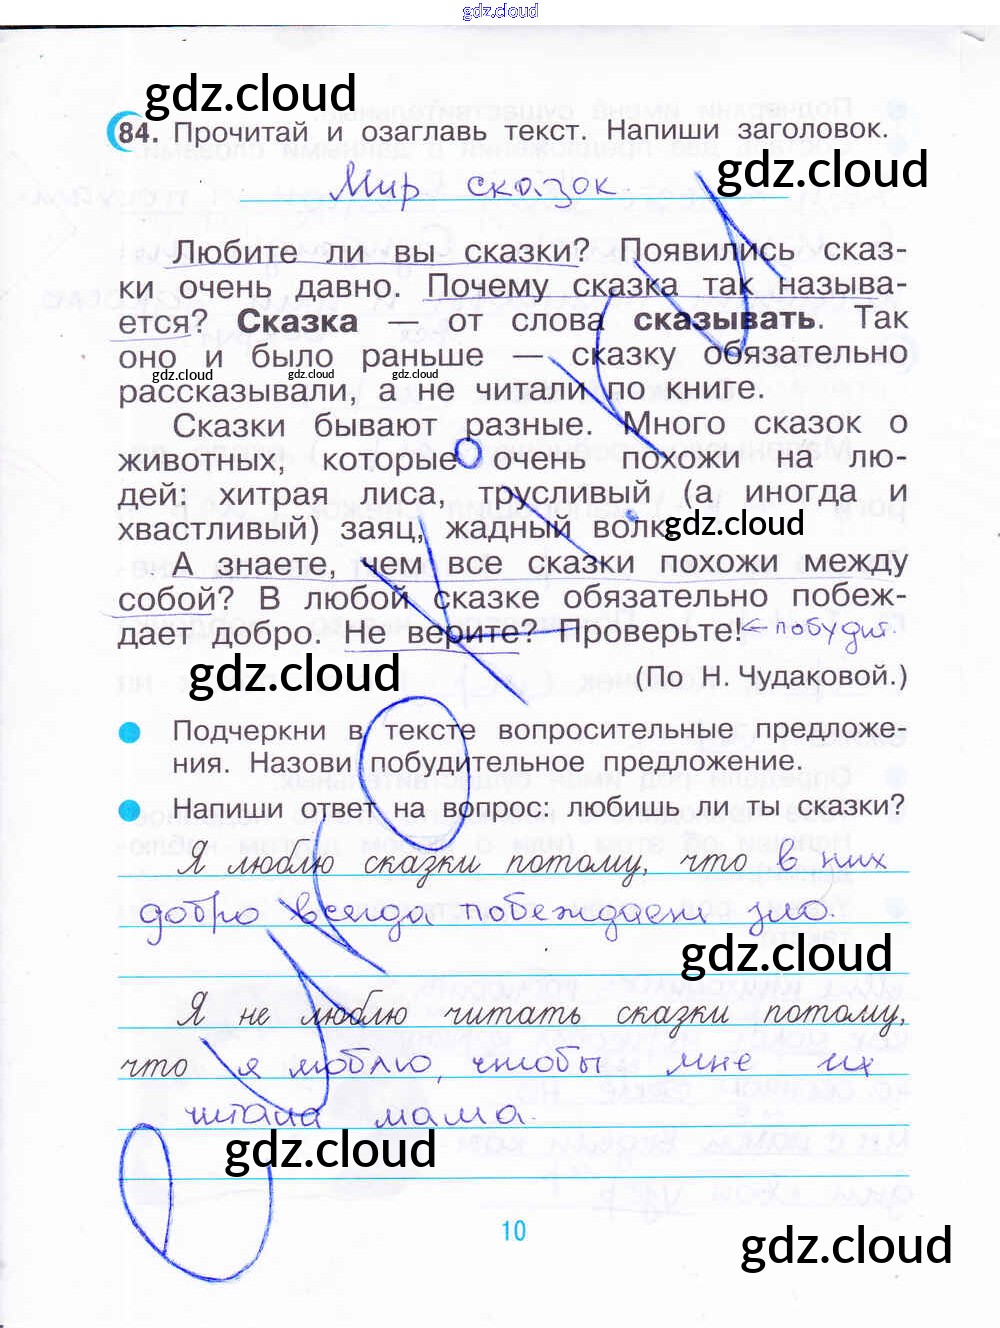 gdz.cloud
gdz.cloud
84. Прочитай и озаглавь текст. Напиши заголовок.
gdz.cloud
Мир сказок
Любите ли вы сказки? Появились сказ-
ки очень давно. Почему сказка так называ-
ется? Сказка — от слова сказывать. Так
оно и было раньше — сказку обязательно
gdz.cloud gdz.cloud gdz.cloud
рассказывали, а не читали по книге.
Сказки бывают разные. Много сказок о
животных, которые очень похожи на лю-
дей: хитрая лиса, трусливый (а иногда и
хвастливый) заяц, жадный волк.
gdz.cloud
А знаете, чем все сказки похожи между
собой? В любой сказке обязательно побеж-
дает добро. Не верите? Проверьте! ← побудит.
gdz.cloud
(По Н. Чудаковой.)
Подчеркни в тексте вопросительные предложе-
ния. Назови побудительное предложение.
Напиши ответ на вопрос: любишь ли ты сказки?
Я люблю сказки потому, что в них
добро всегда побеждает зло.
gdz.cloud
Я не люблю читать сказки потому,
что я люблю, чтобы мне их
читала мама.
gdz.cloud
10
gdz.cloud